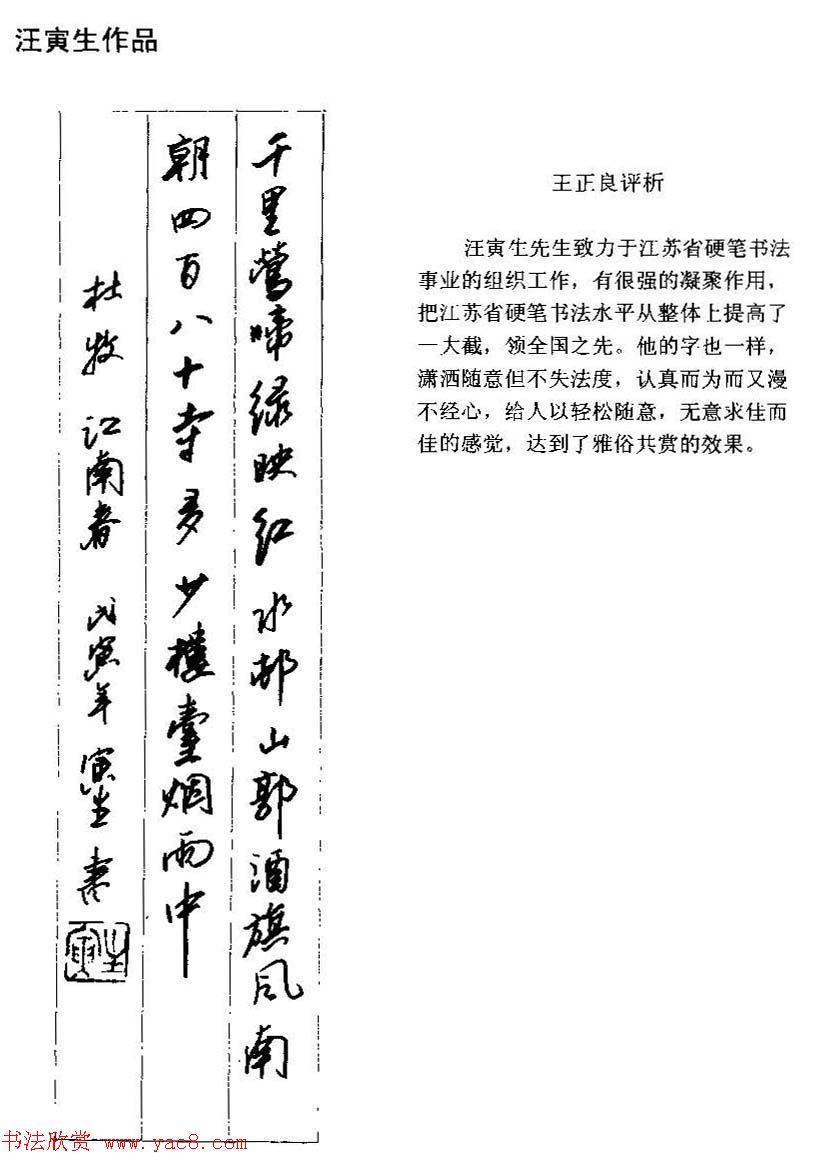 汪寅生作品
千里莺啼绿映红水邨山郭酒旗风南
朝四百八十寺多少楼臺烟雨中
杜牧 江南春 戊寅年 寅生书
寅生
王正良评析
汪寅生先生致力于江苏省硬笔书法
事业的组织工作，有很强的凝聚作用，
把江苏省硬笔书法水平从整体上提高了
一大截，领全国之先。他的字也一样，
潇洒随意但不失法度，认真而为而又漫
不经心，给人以轻松随意，无意求佳而
佳的感觉，达到了雅俗共赏的效果。
书法欣赏 www.yac8.com